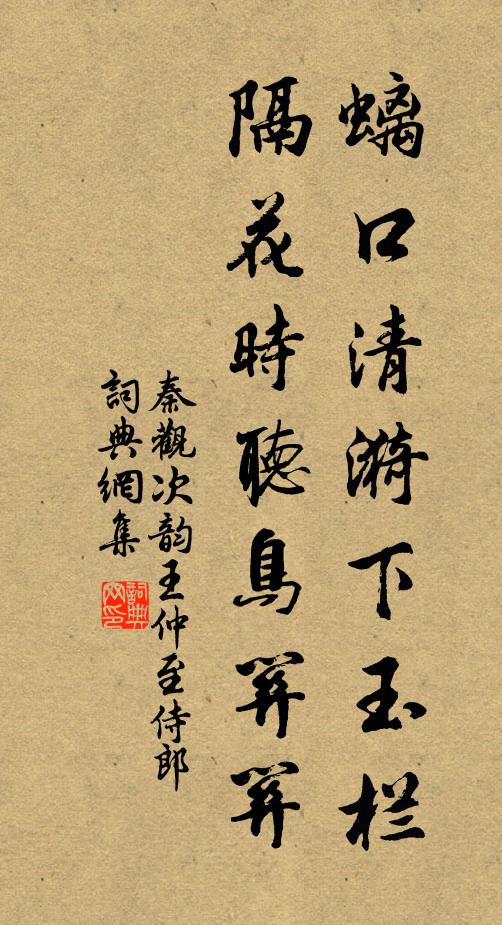 螭口清漪下玉栏
隔花時聽鳥关关
秦觀次韵王仲至侍郎
詞典網集
詞典
网印